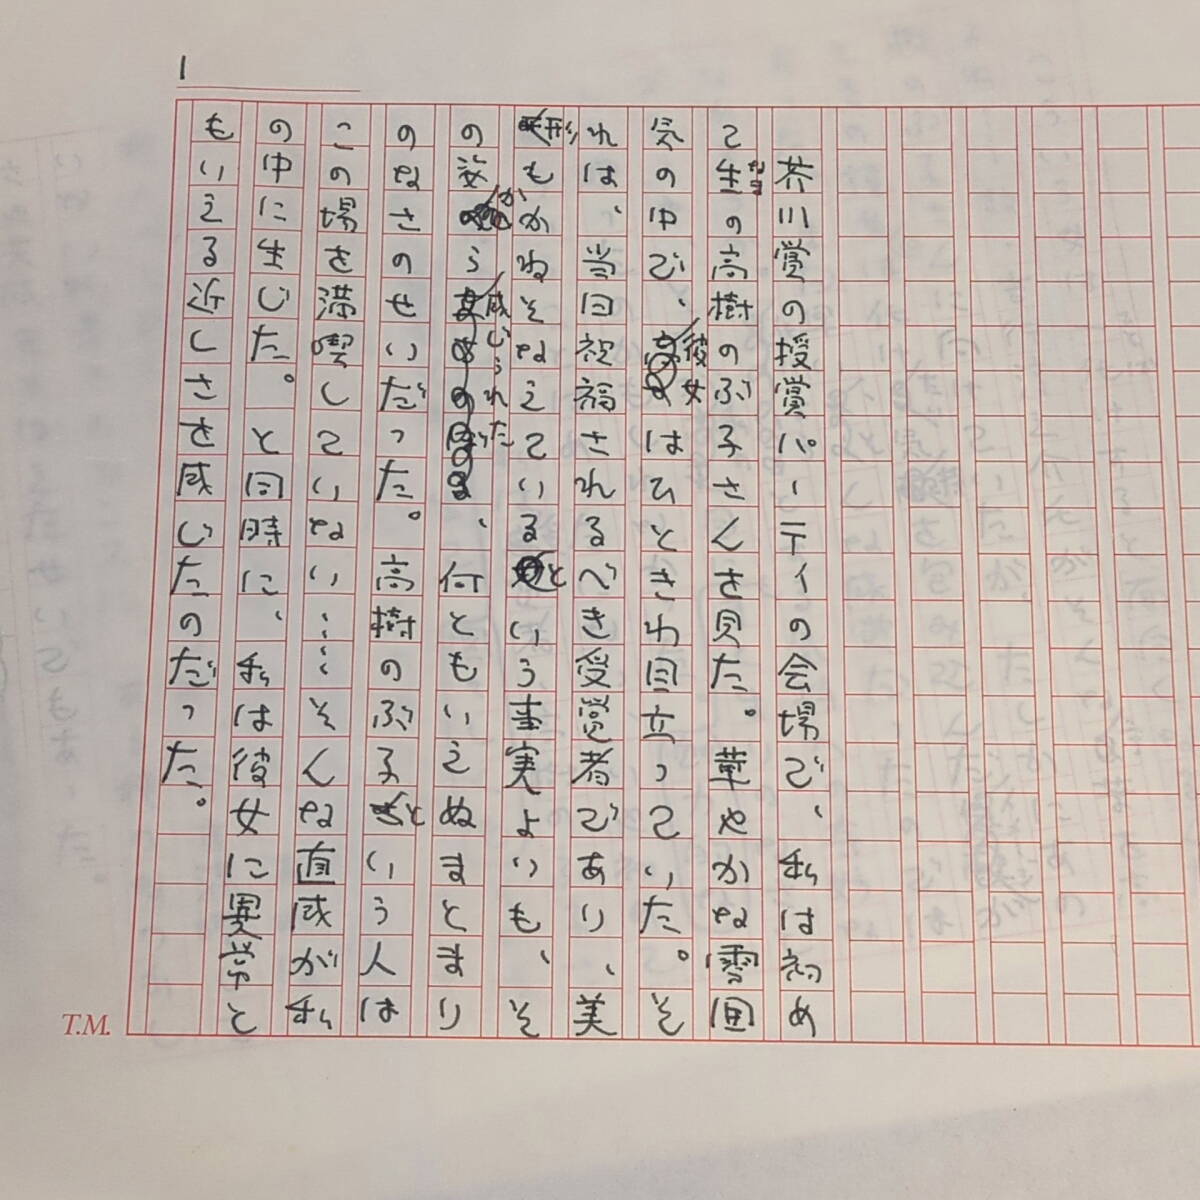 1
芥川賞の授賞パーティの会場で、私は初め
て生の高樹のぶ子さんを見た。華やかな雰囲
なま
気の中で、彼女はひときわ目立っていた。そ
れは、当日祝福されるべき受賞者であり、美
形もかねそなえているという事実よりも、そ
の姿から感じられた、何ともいえぬまとまり
のなさのせいだった。高樹のぶ子という人は
この場を満喫していない……そんな直感が私
の中に生じた。と同時に、私は彼女に異常と
もいえる近しさを感じたのだった。
T.M.